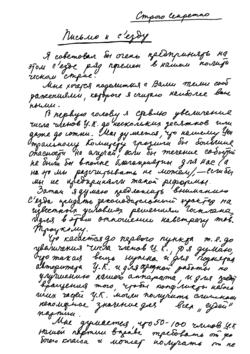 Строго секретно
Письмо к съезду
Я советовал бы очень предпринять на
этом съезде ряд перемен в нашем полити-
ческом строе.
Мне хочется поделиться с Вами теми сооб-
ражениями, которые я считаю наиболее важ-
ными.
В первую голову я ставлю увеличение
числа членов Ц.К. до нескольких десятков или
даже до сотни. Мне думается, что нашему Цен-
тральному Комитету грозили бы большие
опасности на случай, если бы течение событий
не было бы вполне благоприятно для нас (а
на это мы рассчитывать не можем), – если бы
мы не предприняли такой реформы.
Затем я думаю предложить вниманию
съезда придать законодательный характер на
известных условиях решениям Госплана,
идя в этом отношении навстречу тов.
Троцкому.
Что касается до первого пункта, т.е. до
увеличения числа членов Ц.К., то я думаю,
что такая вещь нужна и для поднятия
авторитета Ц.К., и для серьезной работы по
улучшению нашего аппарата, и для предот-
вращения того, чтобы конфликты небольших
частей Ц.К. могли получить слишком
непомерное значение для всех "судеб"
партии.
Мне думается, что 50-100 членов Ц.К.
наша партия вправе требовать от
рабочего класса и может получить от не-